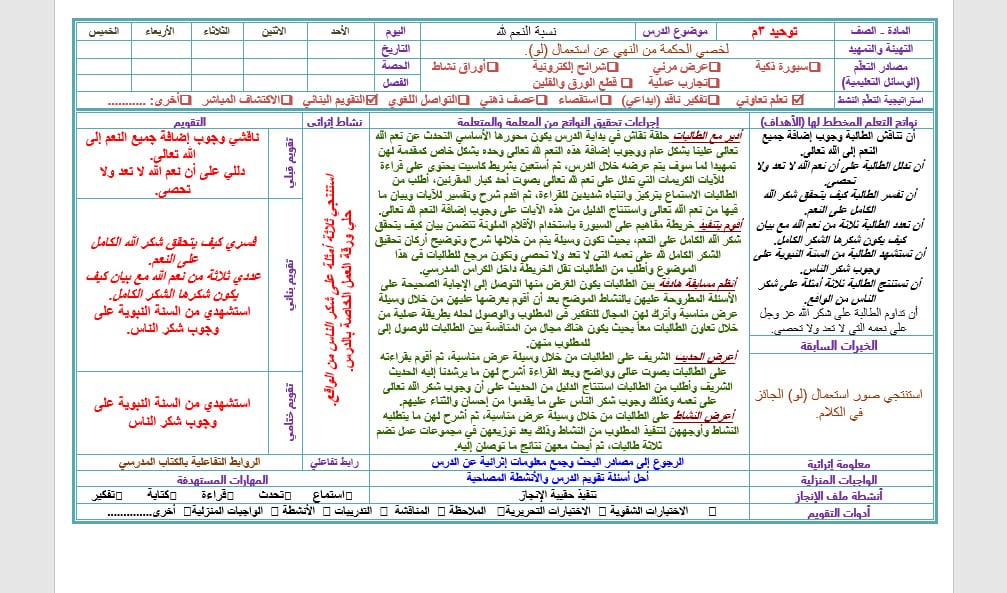 المادة - الصف توحيد ٣م موضوع الدرس نسبة النعم لله اليوم الأحد الأثنين الثلاثاء الأربعاء الخميس
التهيئة والتمهيد لخصي الحكمة من النهي عن استعمال (لو). التاريخ
مصادر التعلّم □سبورة ذكية □عرض مرئي □شرائح إلكترونية □أوراق نشاط الحصة
(الوسائل التعليمية) □تجارب عملية □ قطع الورق والفلين الفصل
استراتيجية التعلّم النشط ☑ تعلم تعاوني □تفكير ناقد (إبداعي) □استقصاء □عصف ذهني □التواصل اللغوي ☑التقويم البنائي □الاكتشاف المباشر □أخرى: ...........
نواتج التعلم المخطط لها (الأهداف) إجراءات تحقيق النواتج من المعلمة والمتعلمة نشاط إثرائي التقويم
أن تناقش الطالبة وجوب إضافة جميع
النعم إلى الله تعالى.
أن تدلل الطالبة على أن نعم الله لا تعد ولا
تحصى.
أن تفسر الطالبة كيف يتحقق شكر الله
الكامل على النعم.
أن تعدد الطالبة ثلاثة من نعم الله مع بيان
كيف يكون شكرها الشكر الكامل.
أن تستشهد الطالبة من السنة النبوية على
وجوب شكر الناس.
أن تستنتج الطالبة ثلاثة أمثلة على شكر
الناس من الواقع.
أن تداوم الطالبة على شكر الله عز وجل
على نعمه التي لا تعد ولا تحصى.
الخبرات السابقة
استنتجي صور استعمال (لو) الجائز
في الكلام.
أدير مع الطالبات حلقة نقاش في بداية الدرس يكون محورها الأساسي التحدث عن نعم الله
تعالى علينا بشكل عام ووجوب إضافة هذه النعم لله تعالى وحده بشكل خاص كمقدمة لهن
تمهيدا لما سوف يتم عرضه خلال الدرس، ثم أستعين بشريط كاسيت يحتوي على قراءة
للآيات الكريمات التي تدلل على نعم لله تعالى بصوت أحد كبار المقرئين، أطلب من
الطالبات الاستماع بتركيز وانتباه شديدين للقراءة، ثم اقدم شرح وتفسير للآيات وبيان ما
فيها من نعم الله تعالى واستنتاج الدليل من هذه الآيات على وجوب إضافة النعم لله تعالى.
أقوم بتنفيذ خريطة مفاهيم على السبورة باستخدام الأقلام الملونة تتضمن بيان كيف يتحقق
شكر الله الكامل على النعم، بحيث تكون وسيلة يتم من خلالها شرح وتوضيح أركان تحقيق
الشكر الكامل لله على نعمه التي لا تعد ولا تحصى وتكون مرجع للطالبات في هذا
الموضوع وأطلب من الطالبات نقل الخريطة داخل الكراس المدرسي.
أنظم مسابقة هادفة بين الطالبات يكون الغرض منها التوصل إلى الإجابة الصحيحة على
الأسئلة المطروحة عليهن بالنشاط الموضح بعد أن أقوم بعرضها عليهن من خلال وسيلة
عرض مناسبة وأترك لهن المجال للتفكير في المطلوب والوصول لحله بطريقة عملية من
خلال تعاون الطالبات معاً بحيث يكون هناك مجال من المنافسة بين الطالبات للوصول إلى
للمطلوب منهن.
أعرض الحديث الشريف على الطالبات من خلال وسيلة عرض مناسبة، ثم أقوم بقراءته
على الطالبات بصوت عالى وواضح وبعد القراءة أشرح لهن ما يرشدنا إليه الحديث
الشريف وأطلب من الطالبات استنتاج الدليل من الحديث على أن وجوب شكر الله تعالى
على نعمه وكذلك وجوب شكر الناس على ما يقدموا من إحسان والثناء عليهم.
أعرض النشاط على الطالبات من خلال وسيلة عرض مناسبة، ثم أشرح لهن ما يتطلبه
النشاط وأوجههن لتنفيذ المطلوب من النشاط وذلك بعد توزيعهن في مجموعات عمل تضم
ثلاثة طالبات، ثم أبحث معهن نتائج ما توصلن إليه.
استنتجي ثلاثة أمثلة على شكر الناس من الواقع.
حلي ورقة العمل الخاصة بالدرس.
تقويم قبلي
ناقشي وجوب إضافة جميع النعم إلى
الله تعالى.
دللي على أن نعم الله لا تعد ولا
تحصى.
تقويم بنائي
فسري كيف يتحقق شكر الله الكامل
على النعم.
عددي ثلاثة من نعم الله مع بيان كيف
يكون شكرها الشكر الكامل.
استشهدي من السنة النبوية على
وجوب شكر الناس.
تقويم ختامي
استشهدي من السنة النبوية على
وجوب شكر الناس
معلومة إثرائية الرجوع إلى مصادر البحث وجمع معلومات إثرائية عن الدرس رابط تفاعلي الروابط التفاعلية بالكتاب المدرسي
الواجبات المنزلية أحل أسئلة تقويم الدرس والأنشطة المصاحبة المهارات المستهدفة
أنشطة ملف الإنجاز تنفيذ حقيبة الإنجاز □استماع □تحدث □قراءة □كتابة □تفكير
أدوات التقويم □ الاختبارات الشفوية □ الاختبارات التحريرية □ الملاحظة □ المناقشة □ التدريبات □ الأنشطة □ الواجبات المنزلية □ أخرى...............